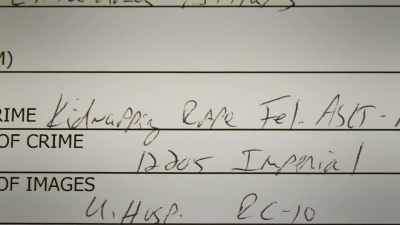 M)
RIME Kidnapping Rape Fel. Aslt -
OF CRIME
12205 Imperial
OF IMAGES
U. Hosp. RC-10